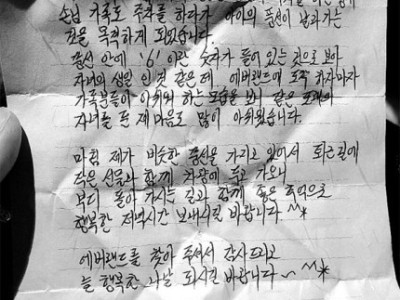 손님 가족도 주차를 하다가 아이의 풍선이 날라가는
것을 목격하게 되었습니다.
풍선 안에 '6'이란 숫자가 들어 있는 것으로 보아
자녀의 생일인 것 같은데, 에버랜드에 도착 하자마자
가족분들이 아쉬워 하는 모습을 보니 같은 또래의
자녀를 둔 제 마음도 많이 아쉬웠습니다.
마침 제가 비슷한 풍선을 가지고 있어서 퇴근길에
작은 선물과 함께 차량에 두고 가오니
부디 돌아 가시는 길과 함께 좋은 추억으로
행복한 저녁시간 보내시길 바랍니다 ^^*
에버랜드를 찾아 주셔서 감사드리고
늘 행복한 나날 되시길 바랍니다~ ^^*